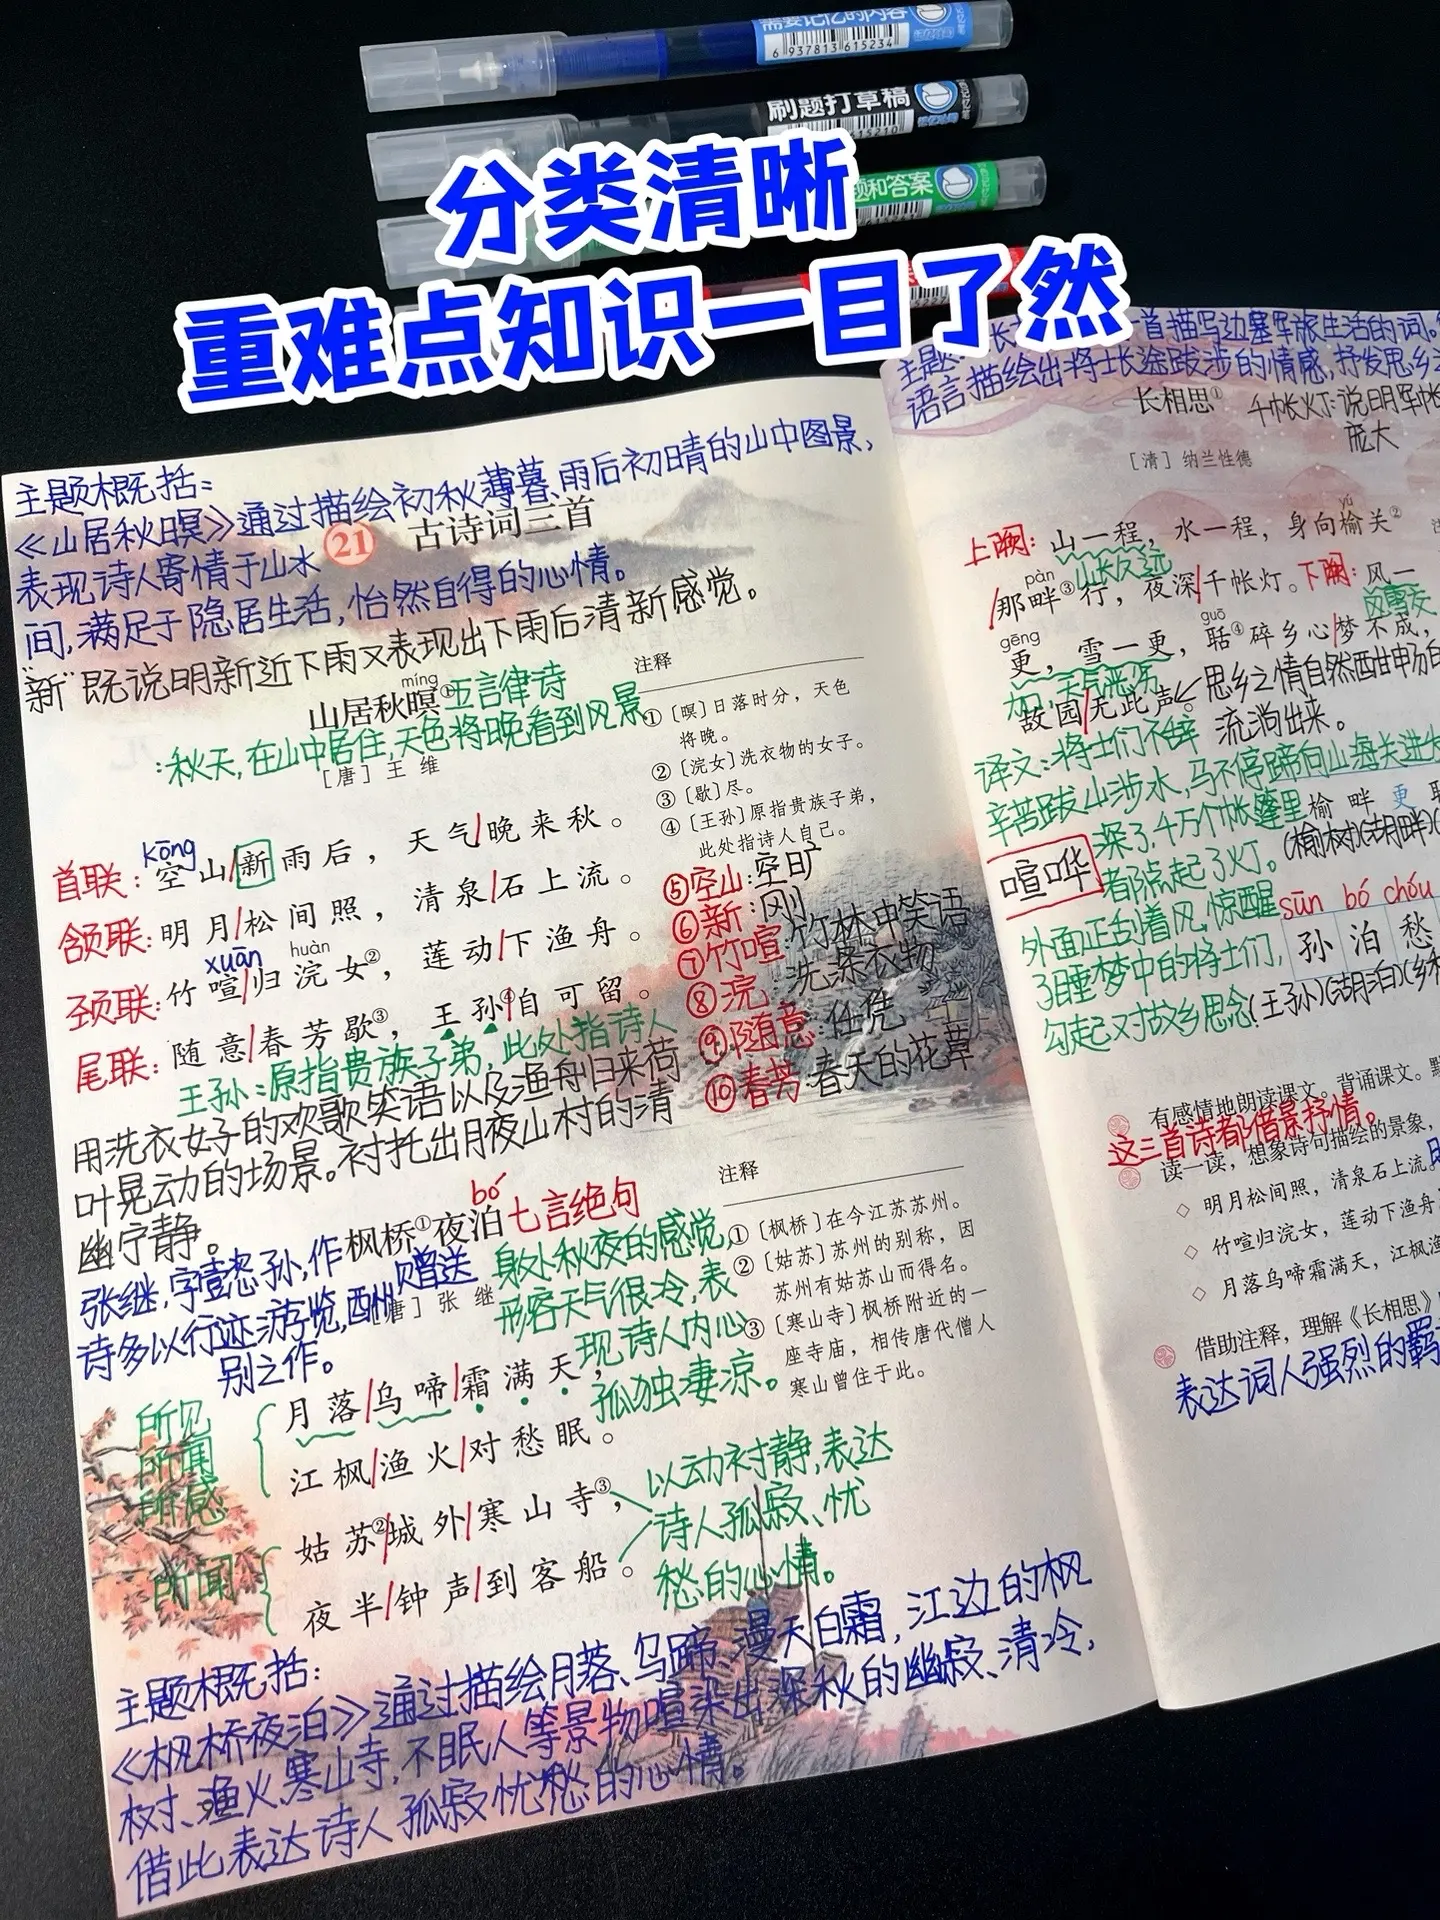 需要记忆的内容
6 937813 615234
刷题打草稿
615210
题和答案
分类清晰
重难点知识一目了然
主题概括:
《山居秋暝》通过描绘初秋薄暮、雨后初晴的山中图景,
表现诗人寄情于山水
间,满足于隐居生活,怡然自得的心情。
21 古诗词三首
"新"既说明新近下雨又表现出下雨后清新感觉。
míng
山居秋暝① 五言律诗
:秋天,在山中居住,天色将晚看到风景
[唐] 王维
注释
① [暝]日落时分,天色
将晚。
② [浣女]洗衣物的女子。
③ [歇]尽。
④ [王孙]原指贵族子弟,
此处指诗人自己。
kōng
首联: 空山/新雨后,天气/晚来秋。
颔联: 明月/松间照,清泉/石上流。
xuān huàn
颈联: 竹喧/归浣女②,莲动/下渔舟。
尾联: 随意/春芳歇③,王孙④/自可留。
王孙:原指贵族子弟,此处指诗人
⑤空山:空旷
⑥新:刚
⑦竹喧:竹林中笑语
⑧浣:洗涤衣物
⑨随意:任凭
⑩春芳:春天的花草
用洗衣女子的欢歌笑语以及渔舟归来荷
叶晃动的场景。衬托出月夜山村的清
幽宁静。
bó
枫桥①夜泊 七言绝句
[唐] 张继
张继,字懿孙,作
诗多以行迹游览,酬赠送
别之作。
身处秋夜的感觉,
形容天气很冷,表
现诗人内心
孤独凄凉。
注释
① [枫桥]在今江苏苏州。
② [姑苏]苏州的别称,因
苏州有姑苏山而得名。
③ [寒山寺]枫桥附近的一
座寺庙,相传唐代僧人
寒山曾住于此。
所见
所闻
所感
月落/乌啼/霜满天,
江枫/渔火/对愁眠。
所闻
姑苏②城外/寒山寺③,
夜半/钟声/到客船。
以动衬静,表达
诗人孤寂、忧
愁的心情。
主题概括:
《枫桥夜泊》通过描绘月落、乌蹄、漫天白霜,江边的枫
树、渔火、寒山寺,不眠人等景物喧染出深秋的幽寂、清冷,
借此表达诗人孤寂忧愁的心情。
一首描写边塞军旅生活的词。
语言描绘出将士长途跋涉的情感,抒发思乡之
长相思①
千帐灯:说明军帐
庞大
[清] 纳兰性德
yú
上阕: 山一程,水一程,身向榆关②
山长水远
pàn
/那畔③行,夜深/千帐灯。下阕: 风一
风雪交
gēng guō
更,雪一更,聒④碎乡心/梦不成,
加,天气恶劣
故园/无此声。
思乡之情自然而
流淌出来。
译文:将士们不辞
辛苦跋山涉水,马不停蹄向山海关进发
深了,千万个帐篷里
都点起了灯。
喧哗
外面正刮着风,惊醒
了睡梦中的将士们,
勾起了对故乡思念
榆 畔 更
(榆树)(湖畔)
sūn bó chóu
孙 泊 愁
(王孙)(湖泊)
有感情地朗读课文。背诵课文。默
这三首诗都借景抒情。
读一读,想象诗句描绘的景象,
◇ 明月松间照,清泉石上流。
◇ 竹喧归浣女,莲动下渔舟
◇ 月落乌啼霜满天,江枫渔
借助注释,理解《长相思》
表达词人强烈的羁